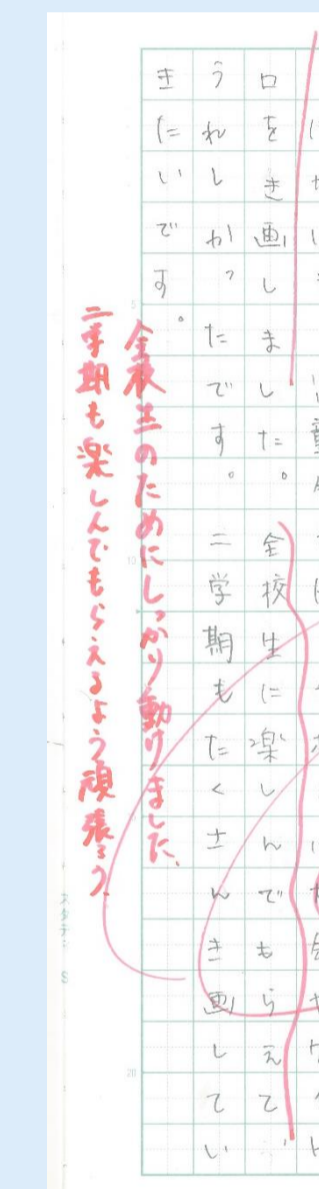 口をき画しました。全校生に楽しんでもらえて
うれしかったです。二学期もたくさんき画してい
きたいです。
全校生のためにしっかり動けました。
二学期も楽しんでもらえるよう頑張ろう
5
10
20